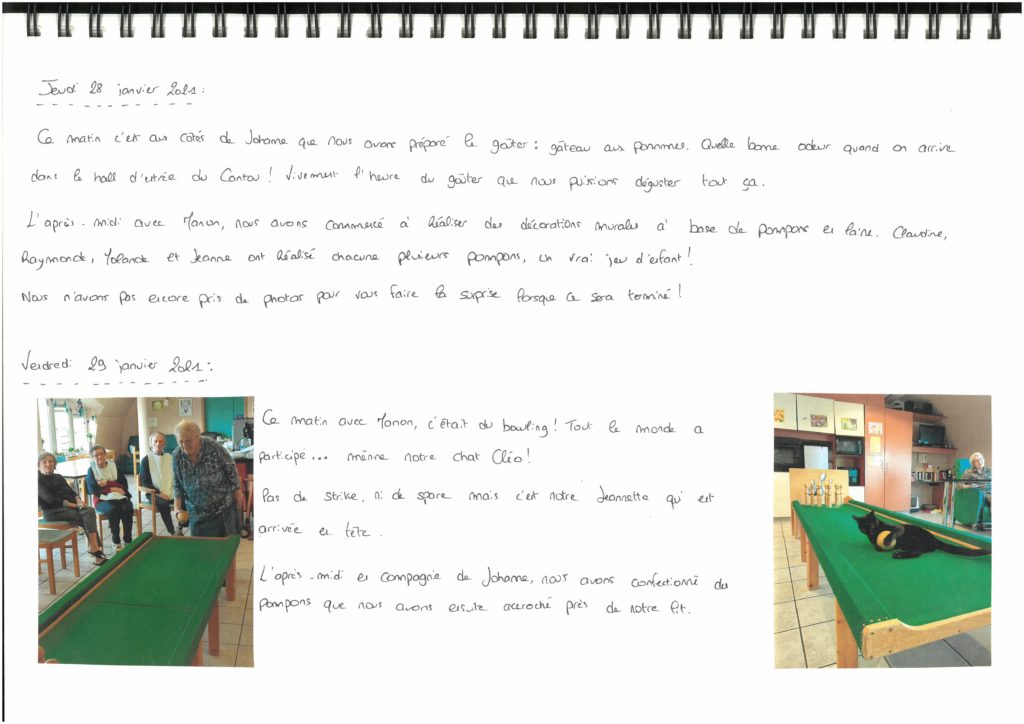 Jeudi 28 janvier 2021 :
Ce matin c'est aux côtés de Johanne que nous avons préparé le goûter : gâteau aux pommes. Quelle bonne odeur quand on arrive
dans le hall d'entrée du Cantou ! Vivement l'heure du goûter que nous puissions déguster tout ça.
L'après-midi avec Manon, nous avons commencé à réaliser des décorations murales à base de pompons en laine. Claudine,
Raymonde, Yolande et Jeanne ont réalisé chacune plusieurs pompons, un vrai jeu d'enfant !
Nous n'avons pas encore pris de photos pour vous faire la surprise lorsque ce sera terminé !
Vendredi 29 janvier 2021 :
Ce matin avec Manon, c'était du bowling ! Tout le monde a
participé ... même notre chat Cléo !
Pas de strike, ni de spare mais c'est notre Jeannette qui est
arrivée en tête.
L'après-midi en compagnie de Johanne, nous avons confectionné des
pompons que nous avons ensuite accroché près de notre lit.